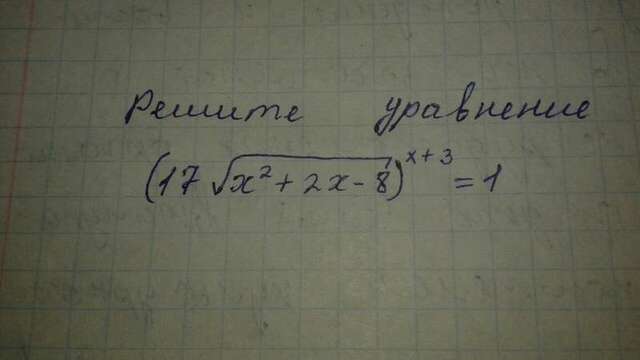 Решите уравнение
(17√(x²+2x-8))^(x+3) = 1